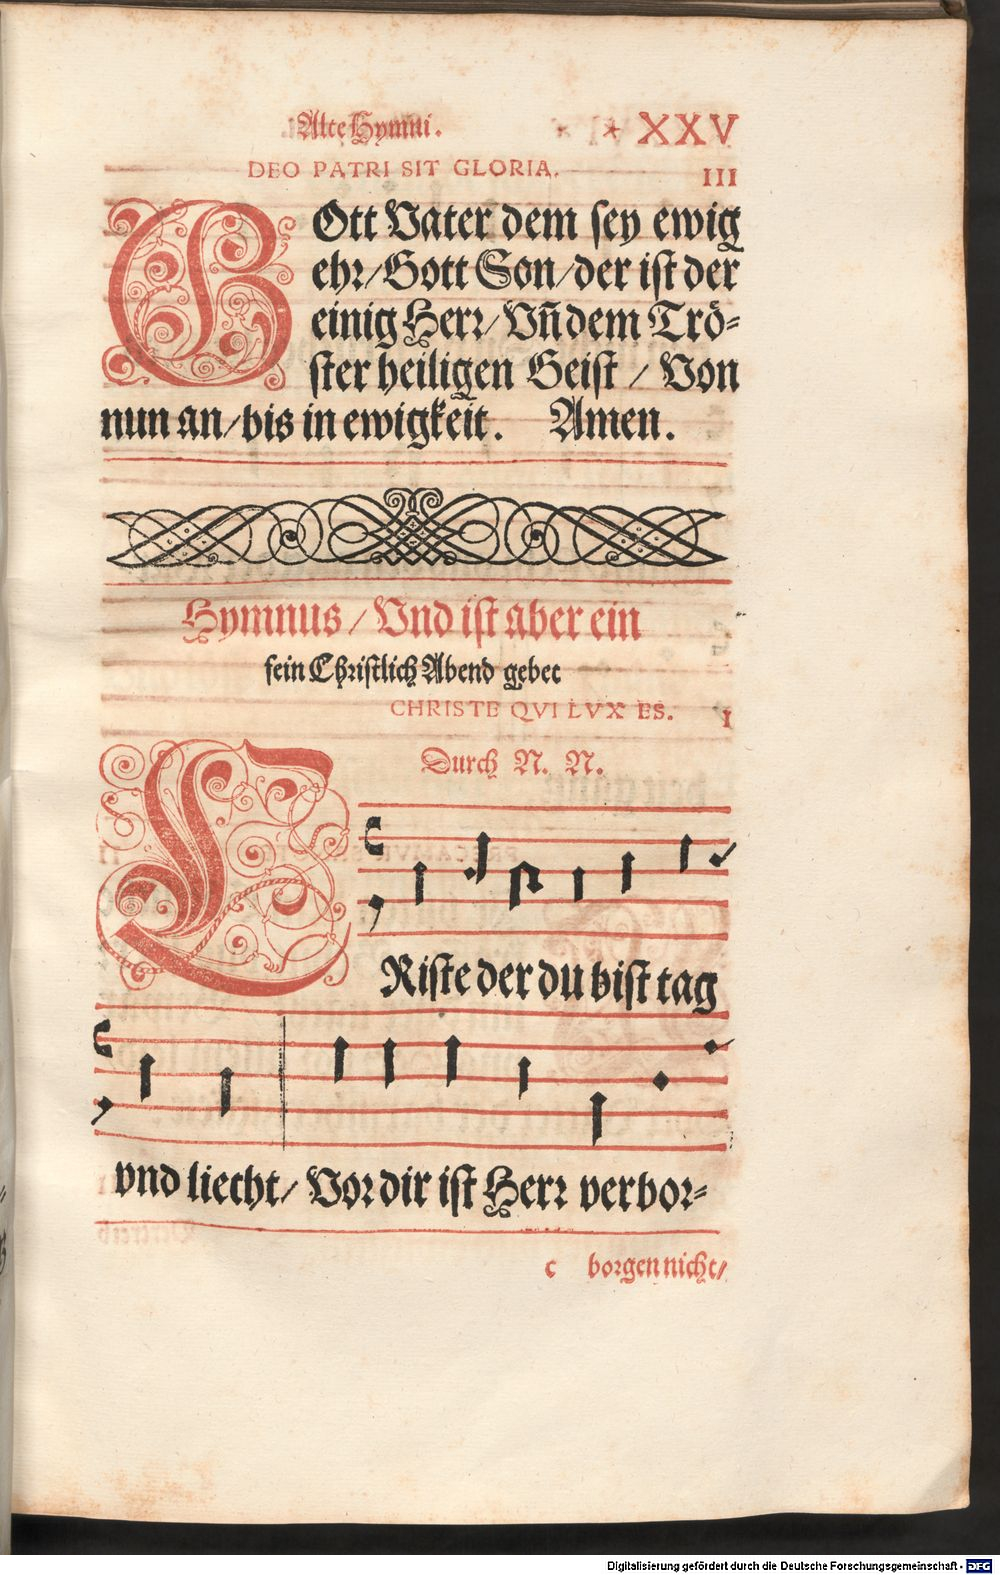 Alte Hymni. * XXV
DEO PATRI SIT GLORIA.
III
GOtt Vater dem sey ewig
ehr/Gott Son/der ist der
einig Herr/Vñ dem Trö-
ster heiligen Geist / Von
nun an/bis in ewigkeit. Amen.
Hymnus / Vnd ist aber ein
fein Christlich Abend gebet
CHRISTE QVI LVX ES. I
Durch N. N.
CRiste der du bist tag
vnd liecht/ Vor dir ist Herr verbor-
c borgen nicht/
Digitalisierung gefördert durch die Deutsche Forschungsgemeinschaft - DFG